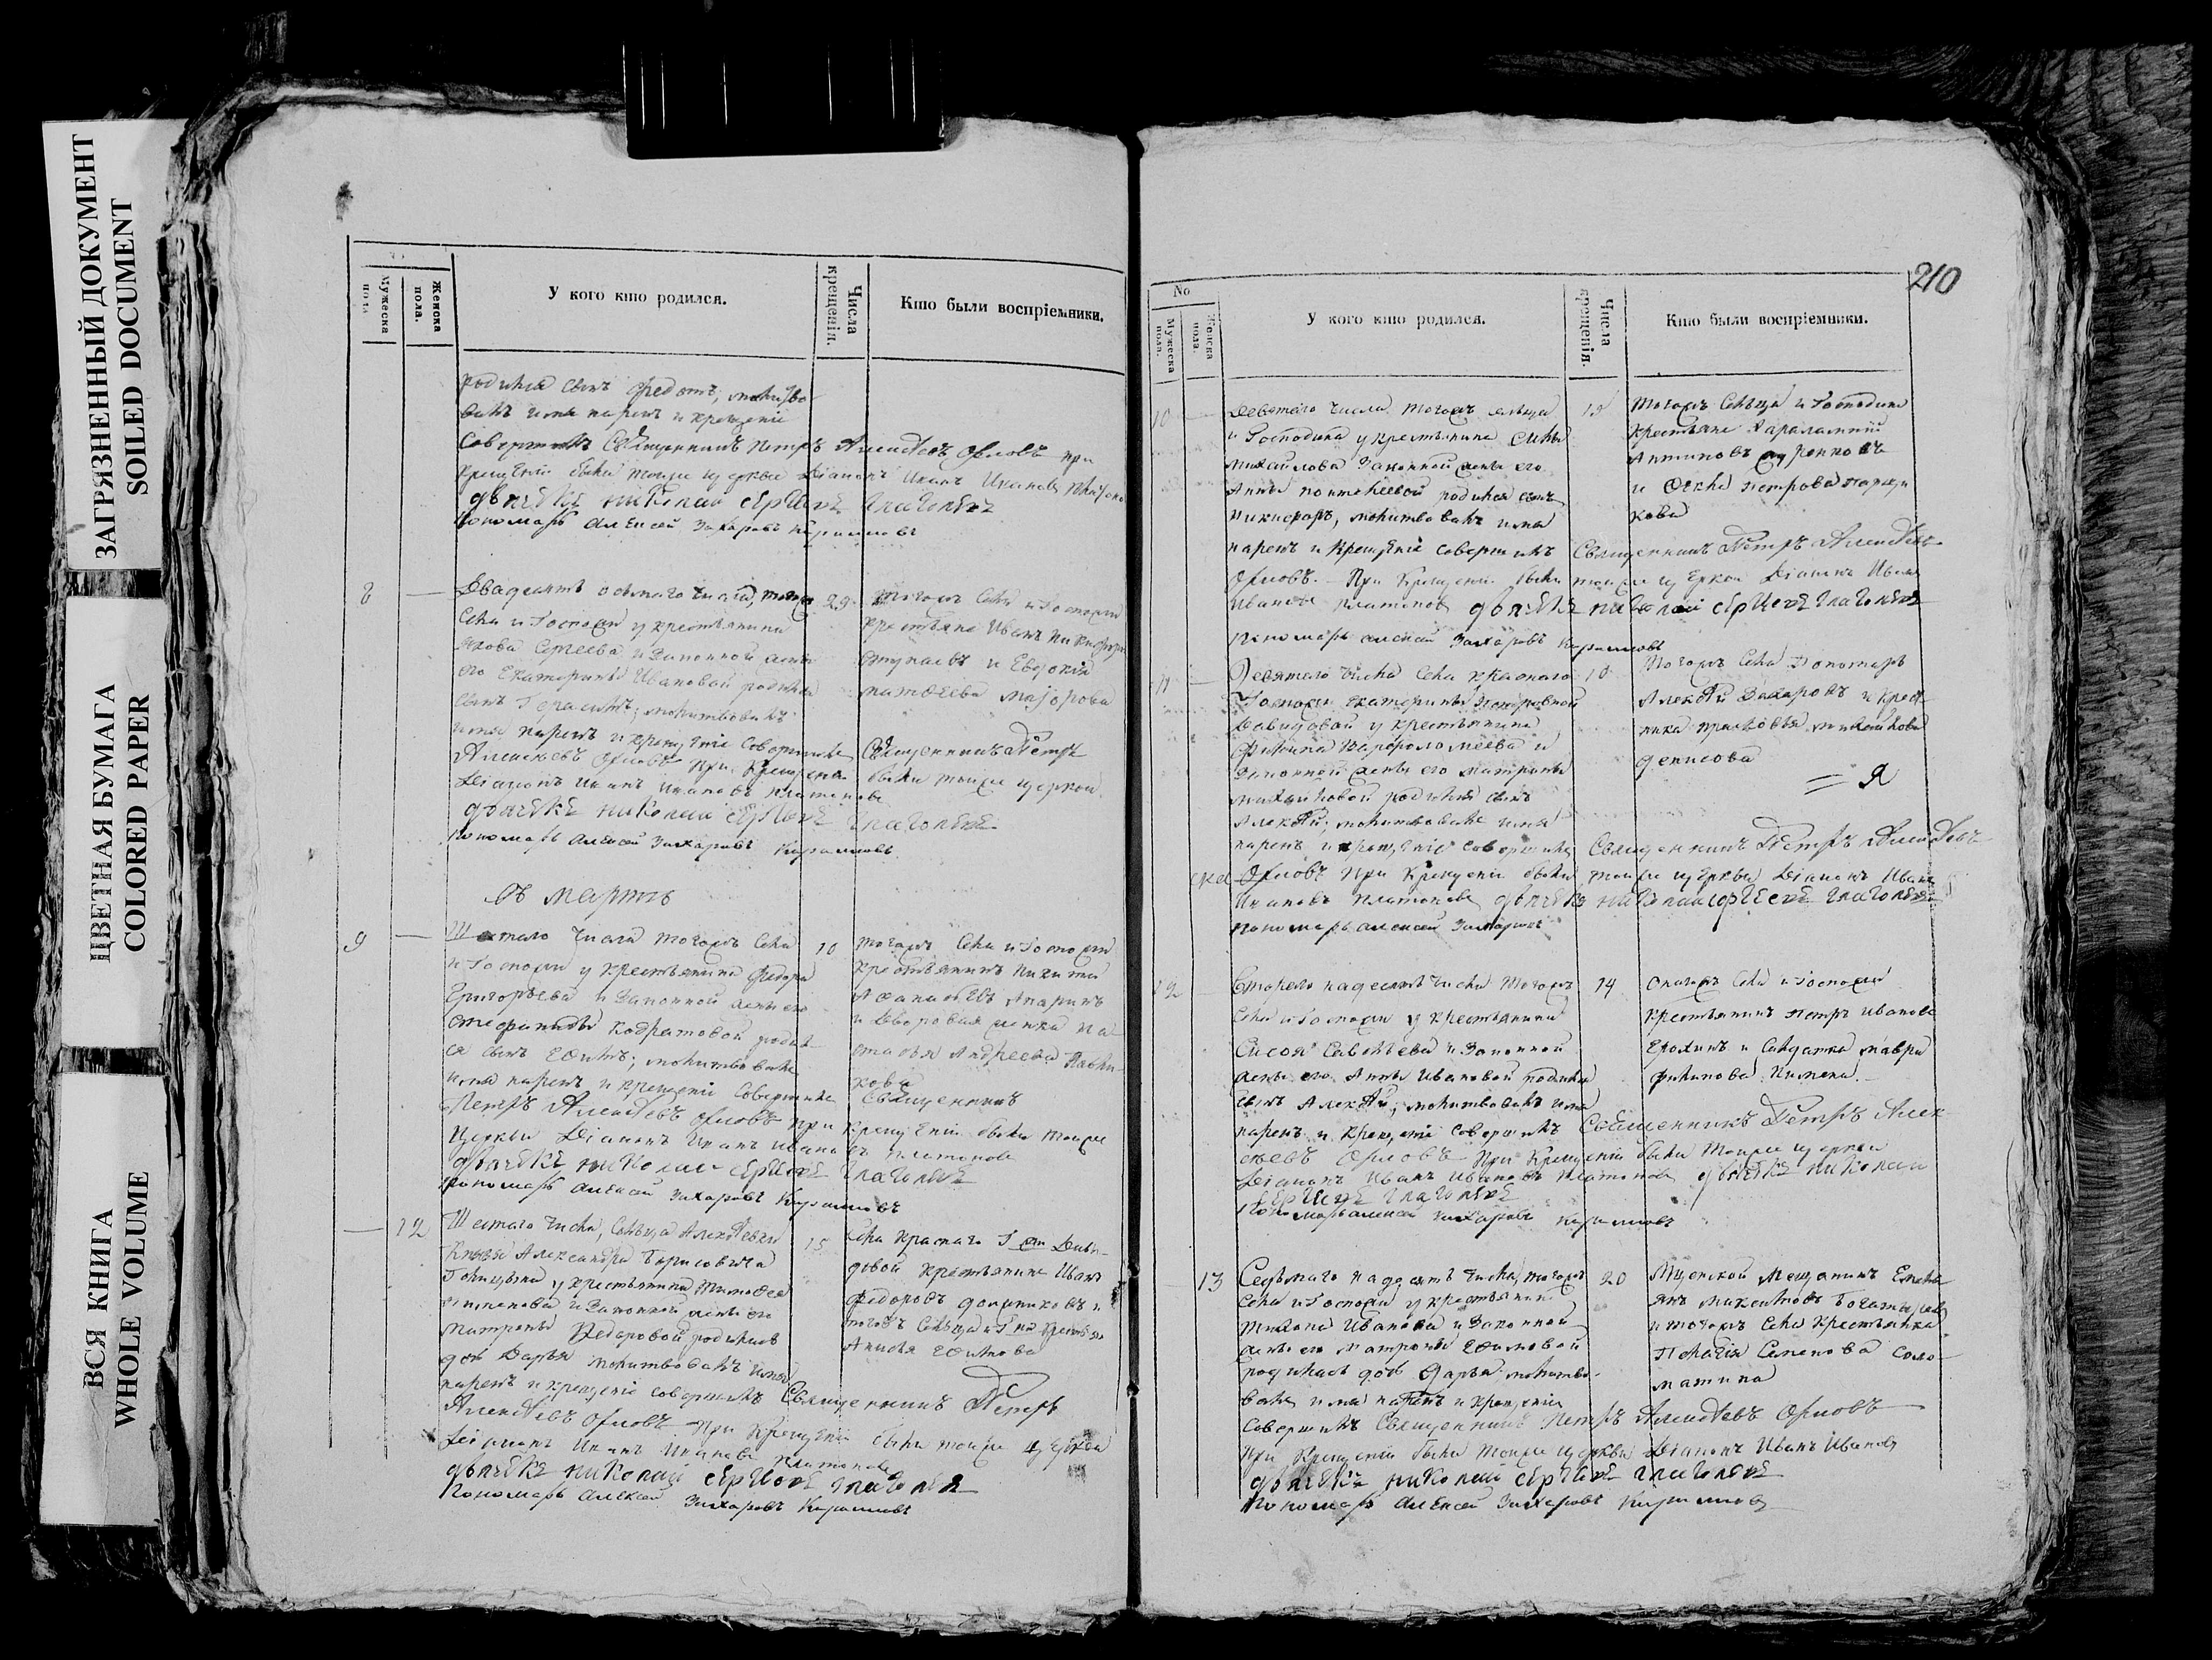 ЗАГРЯЗНЕННЫЙ ДОКУМЕНТ
SOILED DOCUMENT
ЦВЕТНАЯ БУМАГА
COLORED PAPER
ВСЯ КНИГА
WHOLE VOLUME
Мужеска пола
Женска пола.
У кого кто родился.
Числа крещенія.
Кто были воспріемники.
родился сынъ Федотъ, молитво
валъ имя нарекъ и крещеніе
Совершилъ Священникъ Петръ Алексѣевъ Орловъ при
крещеніи были тоиже церкви Діаконъ Иванъ Ивановъ
дьячекъ николай сергѣевъ глаголевъ
Пономарь алексей Захаровъ
8 — Двадцать осьмаго числа, тогожъ
села и Госпожи у крестьянина
Якова Сергеева и Законной жены
его Екатерины Ивановой родился
сынъ Герасимъ; молитвовалъ
имя нарекъ и крещеніе совершилъ Священникъ Петръ
Алексѣевъ Орловъ при Крещеніи были тоиже церкви
Діаконъ Иванъ Ивановъ Платоновъ
дьячекъ николай сергѣевъ глаголевъ
Пономарь алексей Захаровъ
29 Тогожъ Села и Госпожи
крестьяне Иванъ Никифоровъ
и Евдокія
матвеева маіорова
въ мартѣ
9 — числа тогожъ Села
и Госпожи у крестьянина Федора
Григорьева и Законной жены его
Стефаниды Кодратовой родил
ся сынъ Ефимъ; молитвовалъ
имя нарекъ и крещеніе Совершилъ Священникъ
Петръ Алексѣевъ Орловъ при крещеніи были тоиже
Церкви Діаконъ Иванъ Ивановъ Платоновъ
дьячекъ николай сергѣевъ глаголевъ
Пономарь алексей Захаровъ
10 тогожъ Села и Госпожи
крестьянинъ Никита
и дворовая женка На
сталья Андреева
— 12 Шестаго числа, Сельца Алексѣевки
Князя Александра Борисовича
Голицына у крестьянина Тимофея
и Законной жены его
Матроны Федоровой родилась
дочь Дарья молитвовалъ имя
нарекъ и крещеніе совершилъ Священникъ Петръ
Алексѣевъ Орловъ. При Крещеніи были тоиже церкви
Діаконъ Иванъ Ивановъ Платоновъ
дьячекъ николай сергѣевъ глаголевъ
Пономарь алексей Захаровъ
15 села Краснаго Г. Давы-
довой крестьянинъ Иванъ
Федоровъ и
Анисья Ефимова
210
No
Мужеска пола.
Женска пола.
У кого кто родился.
Числа крещенія.
Кто были воспріемники.
10 — Девятаго числа тогожъ сельца
и Господина у крестьянина
михайлова Законной жены его
Анны родился сынъ
Никифоръ, молитвовалъ имя
нарекъ и Крещеніе совершилъ Священникъ Петръ Алексѣевъ
Орловъ. При Крещеніи были тоиже церкви Діаконъ Иванъ
Ивановъ Платоновъ дьячекъ николай сергѣевъ глаголевъ
Пономарь алексей Захаровъ
Тогожъ Сельца и Господина
Крестьяне Харалампій
Антиповъ
и петрова
11 — Десятаго числа села краснаго
Госпожи Екатерины Петровной
Давыдовой у крестьянина
Филипа Варфоломеева и
Законной жены его матрены
михайловой родился сынъ
Алексѣй, молитвовалъ имя
нарекъ и крещеніе совершилъ Священникъ Петръ Алексѣевъ
Орловъ При Крещеніи были тоиже церкви Діаконъ Иванъ
Ивановъ Платоновъ дьячекъ николай сергѣевъ глаголевъ
Пономарь алексей Захаровъ
10 Тогожъ Села Пономарь
Алексѣй Захаровъ и
денисова
12 Второго надесять числа тогожъ
Села и Госпожи у крестьянина
Сисоя Савельева и Законной
жены его Анны Ивановой родился
сынъ Алексѣй, молитвовалъ имя
нарекъ и Крещеніе совершилъ Священникъ Петръ Алек
сѣевъ Орловъ При Крещеніи были тоиже церкви
Діаконъ Иванъ Ивановъ Платоновъ дьячекъ николай
сергѣевъ глаголевъ
Пономарь алексей Захаровъ
14 Села и Госпожи
Крестьянинъ Петръ Ивановъ
Ерохинъ и Салдатка мавра
филипова
13 Седьмаго надесять числа, тогожъ
села и Госпожи у крестьянина
Иванова и Законной
жены его Матроны Ефимовой
родилась дочь Дарья молитво-
валъ имя нарекъ и Крещеніе
Совершилъ Священникъ Петръ Алексѣевъ Орловъ
При Крещеніи были тоиже церкви Діаконъ Иванъ Ивановъ
дьячекъ николай сергѣевъ глаголевъ
Пономарь алексей Захаровъ
20 Мценской Мещанинъ
и тогожъ Села Крестьянка
Пелагія Семенова Соло-
матина